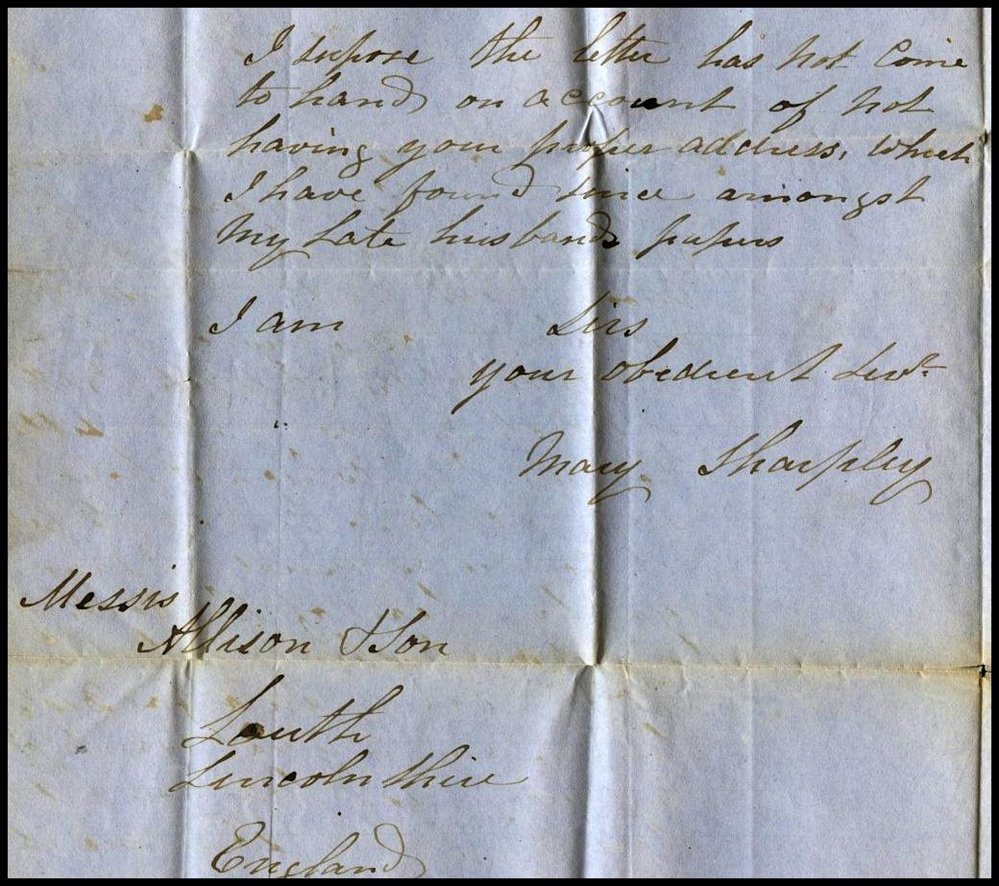 I supose the letter has not Come
to hand on account of not
having your proper address, which
I have found since amongst
My Late husbands papers
I am Sirs
your obedient Servt
Mary Sharpley
Messrs
Allison & Son
Louth
Lincolnshire
England